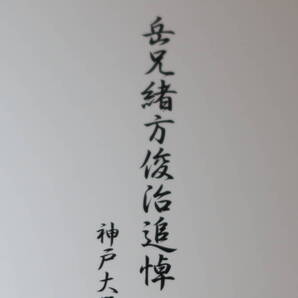 岳兄緒方俊治追悼
神戸大